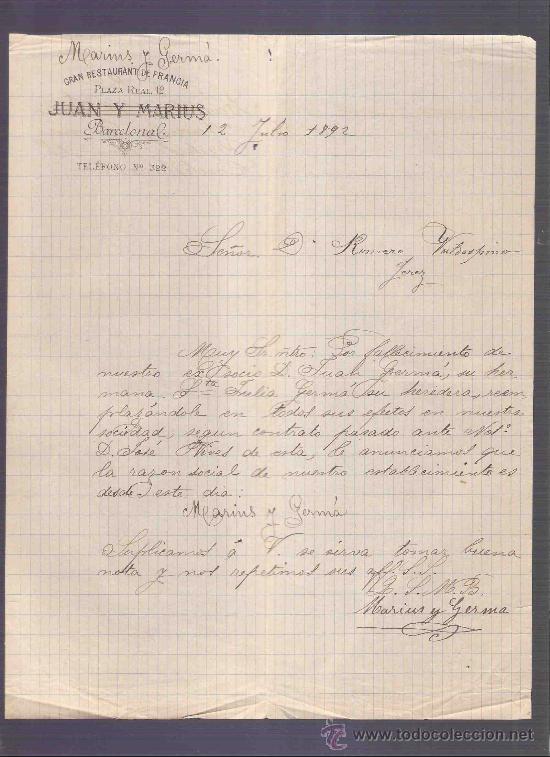 Marius y Germá.
GRAN RESTAURANT DE FRANCIA
PLAZA REAL, 12
JUAN Y MARIUS
Barcelona
12 Julio 1892
TELÉFONO Nº 322
Señor Dn Romero Valdespino
Jerez
Muy Sr. ntro: Por fallecimiento de
nuestro ex socio D. Juan Germá, su her
mana Sta Julia Germá su heredera, reem
plazándole en todos sus efetos en nuestra
sociedad, segun contrato pasado ante Noto
D. José Vives de esta, le anunciamos que
la razon social de nuestro establecimiento es
desde este dia:
Marius y Germá
Suplicamos á V. se sirva tomar buena
nota y nos repetimos sus aff. S.S.
Q. S. M. B.
Marius y Germa
todocoleccion
www.todocoleccion.net